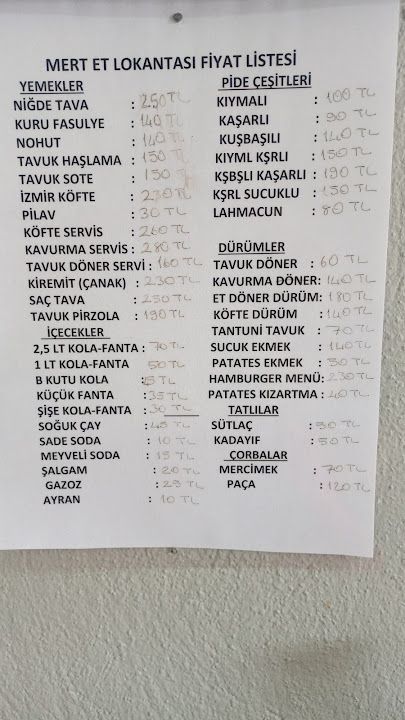 MERT ET LOKANTASI FİYAT LİSTESİ
YEMEKLER
NİĞDE TAVA : 250 TL
KURU FASULYE : 140 TL
NOHUT : 140 TL
TAVUK HAŞLAMA : 150 TL
TAVUK SOTE : 150 TL
İZMİR KÖFTE : TL
PİLAV : 30 TL
KÖFTE SERVİS : 260 TL
KAVURMA SERVİS : 280 TL
TAVUK DÖNER SERVİ : 160 TL
KİREMİT (ÇANAK) : 230 TL
SAÇ TAVA : 250 TL
TAVUK PİRZOLA : 190 TL
İÇECEKLER
2,5 LT KOLA-FANTA : 70 TL
1 LT KOLA-FANTA 50 TL
B KUTU KOLA : TL
KÜÇÜK FANTA : 35 TL
ŞİŞE KOLA-FANTA : 30 TL
SOĞUK ÇAY : 45 TL
SADE SODA : 10 TL
MEYVELİ SODA : 15 TL
ŞALGAM : 20 TL
GAZOZ : 25 TL
AYRAN : 10 TL
PİDE ÇEŞİTLERİ
KIYMALI : 100 TL
KAŞARLI : 90 TL
KUŞBAŞILI : 140 TL
KIYML KŞRLI : 150 TL
KŞBŞLI KAŞARLI : 190 TL
KŞRL SUCUKLU : 150 TL
LAHMACUN : 80 TL
DÜRÜMLER
TAVUK DÖNER : 60 TL
KAVURMA DÖNER: 140 TL
ET DÖNER DÜRÜM: 180 TL
KÖFTE DÜRÜM : 140 TL
TANTUNİ TAVUK : 70 TL
SUCUK EKMEK : 140 TL
PATATES EKMEK : 50 TL
HAMBURGER MENÜ: 230 TL
PATATES KIZARTMA : 40 TL
TATLILAR
SÜTLAÇ : 50 TL
KADAYIF : 50 TL
ÇORBALAR
MERCİMEK : 70 TL
PAÇA : 120 TL